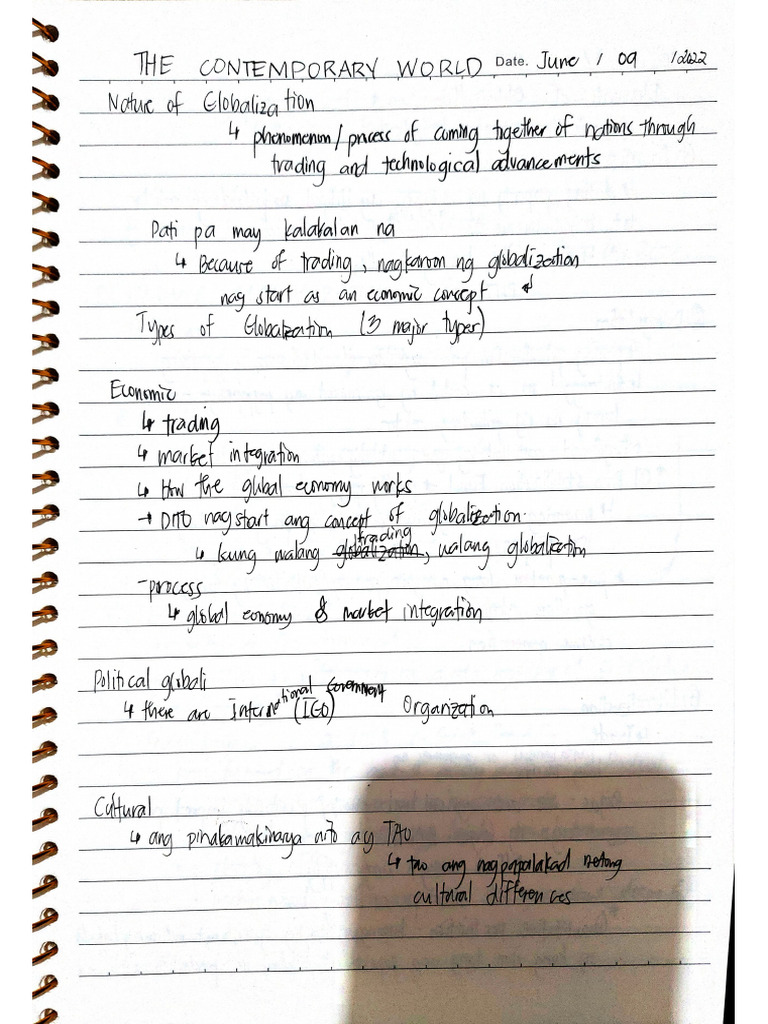 THE CONTEMPORARY WORLD Date. June / 09 / 2022
Nature of Globalization
↳ phenomenon / process of coming together of nations through
trading and technological advancements
Dati pa may kalakalan na
↳ Because of trading, nagkaroon ng globalization
nag start as an economic concept
Types of Globalization (3 major types)
Economic
↳ trading
↳ market integration
↳ How the global economy works
→ DITO nagstart ang concept of globalization.
↳ kung walang ~~globalization~~ trading, walang globalization
- process
↳ global economy & market integration
Political globali
↳ there are International Government (IGO) Organization
Cultural
↳ ang pinakamakinarya nito ay TAO
↳ tao ang nagpapalakad netong
cultural differences